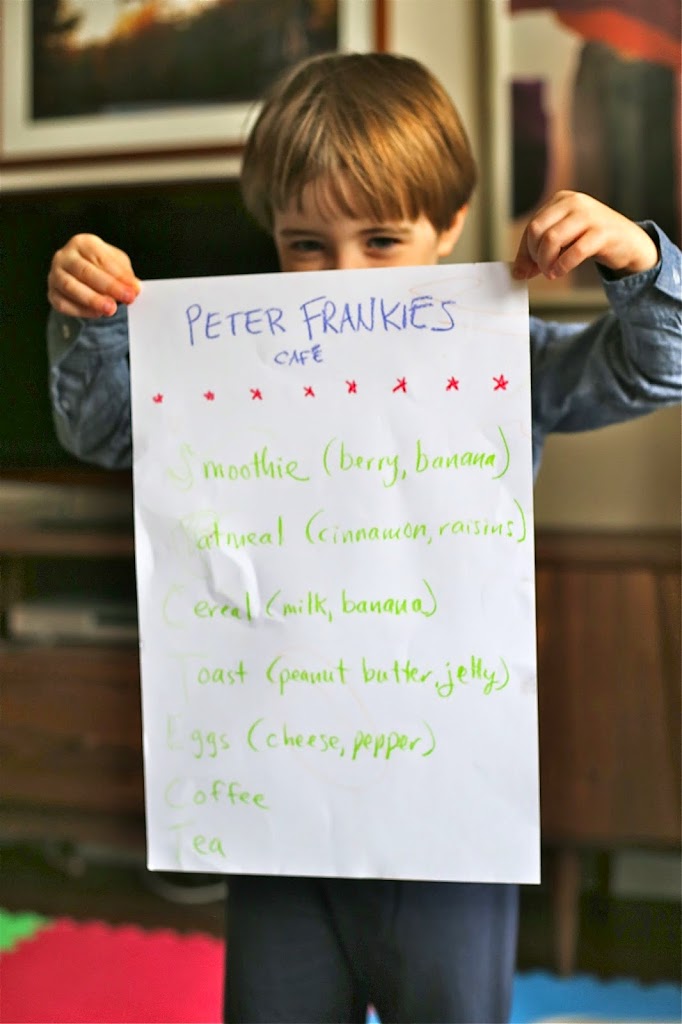 PETER FRANKIES
CAFÉ
Smoothie (berry, banana)
Oatmeal (cinnamon, raisins)
Cereal (milk, banana)
Toast (peanut butter, jelly)
Eggs (cheese, pepper)
Coffee
Tea